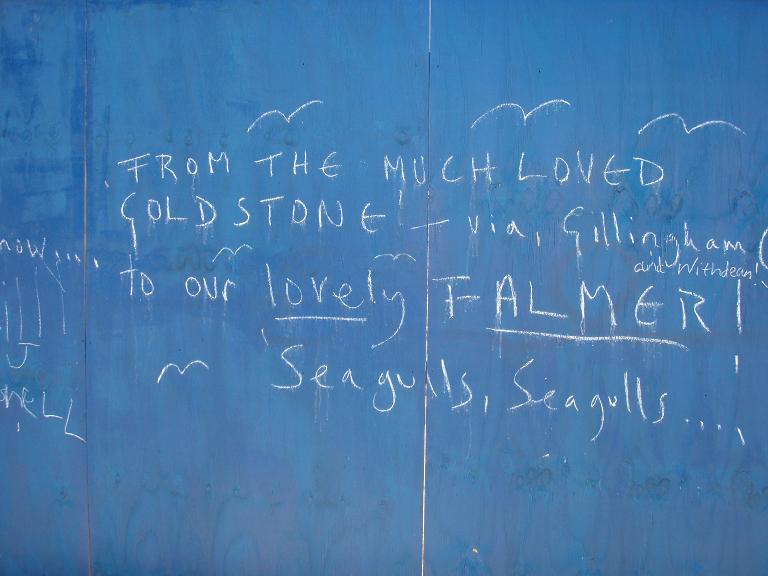 FROM THE MUCH LOVED
GOLDSTONE – via, Gillingham
and Withdean!
to our lovely FALMER!
'Seagulls, Seagulls....,
now....,
J